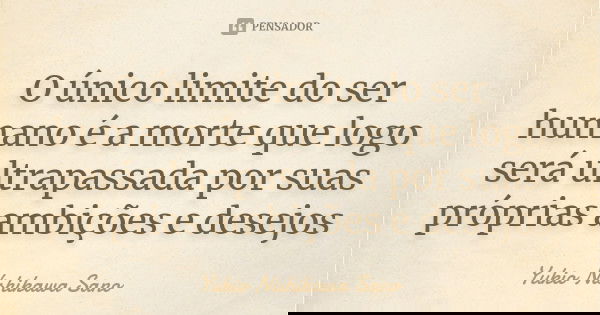 PENSADOR
O único limite do ser
humano é a morte que logo
será ultrapassada por suas
próprias ambições e desejos
Yukio Sano